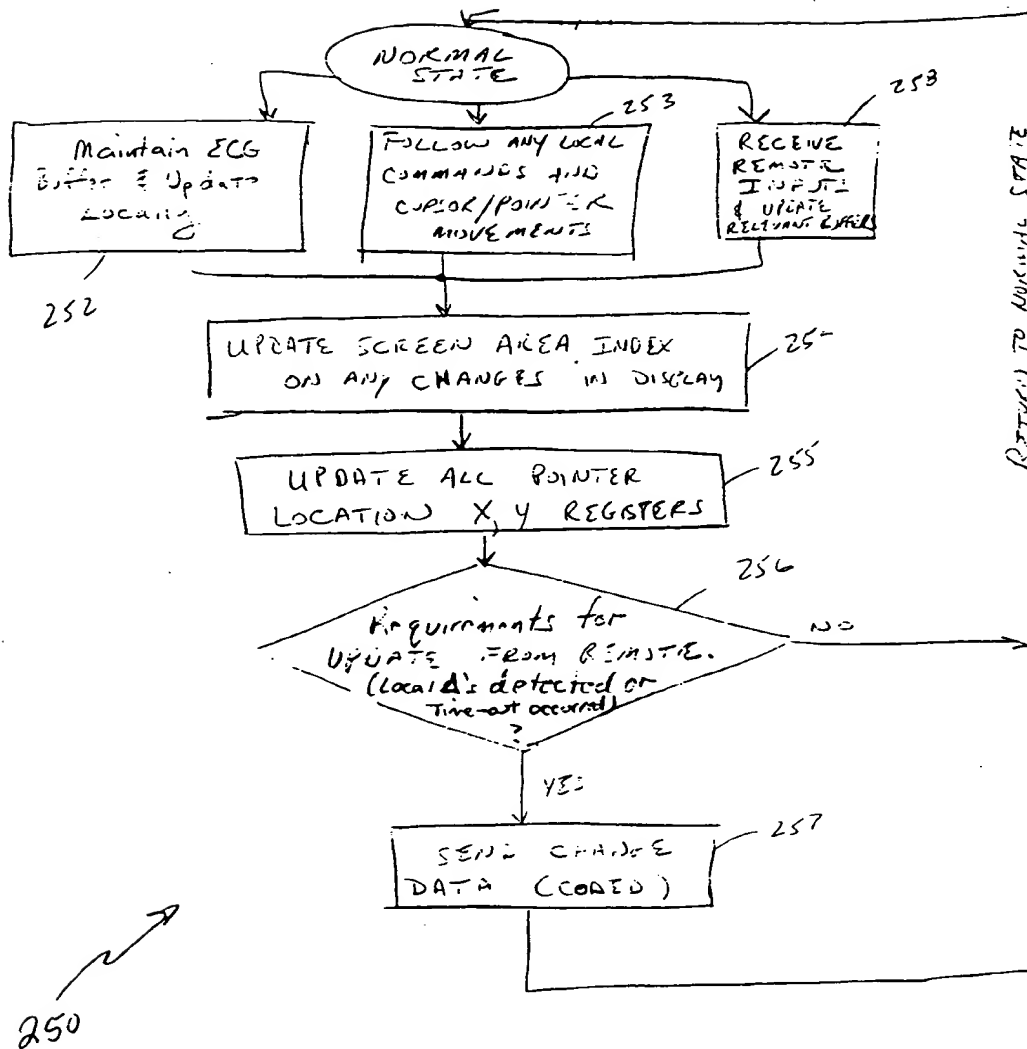 NORMAL
STATE
253
253
Maintain ECG
Buffer & Update
Locally
252
FOLLOW ANY LOCAL
COMMANDS AND
CURSOR/POINTER
MOVEMENTS
RECEIVE
REMOTE
INPUTS
& UPDATE
RELEVANT BUFFERS
UPDATE SCREEN AREA INDEX
ON ANY CHANGES IN DISPLAY
25
UPDATE ALL POINTER
LOCATION X, Y REGISTERS
255
256
Requirements for
UPDATE FROM REMOTE.
(Local Δ's detected or
Time-out occurred)
?
NO
YES
SEND CHANGE
DATA (CODED)
257
250
RETURN TO NORMAL STATE